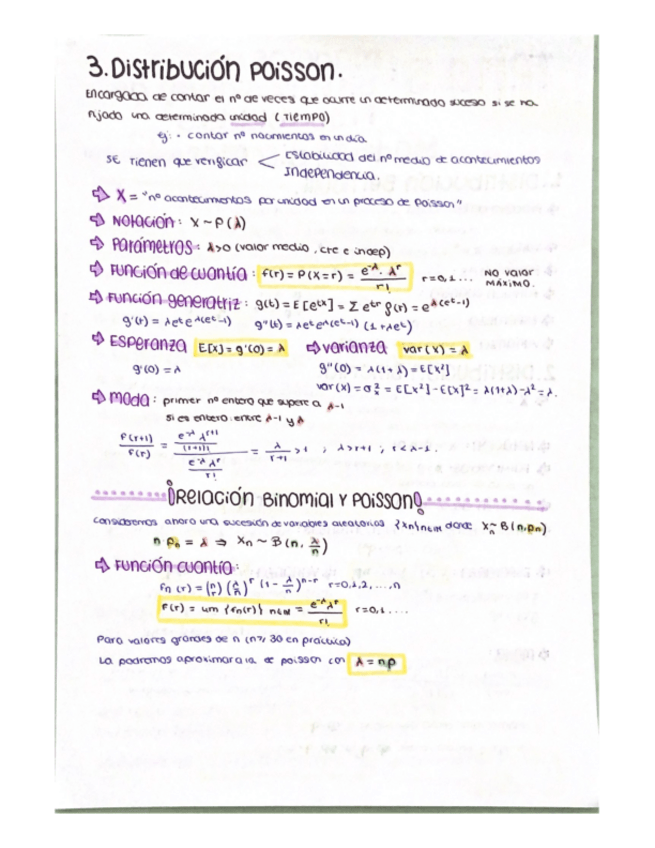 3. Distribución Poisson.
Encargada de contar el nº de veces que ocurre un determinado suceso si se ha
fijado una determinada unidad (tiempo)
ej: · contar nº nacimientos en un día
se tienen que verificar < Estabilidad del nº medio de acontecimientos
Independencia.
⇨ X = "nº acontecimientos por unidad en un proceso de Poisson"
⇨ Notación: X ~ P(λ)
⇨ Parámetros: λ>0 (valor medio, cte e indep)
⇨ Función de cuantía: f(r) = P(X=r) = e^-λ · λ^r / r! r=0,1... NO valor MÁXIMO.
⇨ Función generatriz: g(t) = E[e^tx] = Σ e^tr f(r) = e^λ(e^t-1)
g'(t) = λe^t e^λ(e^t-1) g''(t) = λe^t e^λ(e^t-1) (1+λe^t)
⇨ Esperanza E[x] = g'(0) = λ ⇨ varianza var(x) = λ
g'(0) = λ g''(0) = λ(1+λ) = E[x²]
var(x) = σ²x = E[x²] - E[x]² = λ(1+λ) - λ² = λ.
⇨ Moda: primer nº entero que supere a λ-1
si es entero: entre λ-1 y λ
P(r+1) / f(r) = (e^-λ λ^r+1 / (r+1)!) / (e^-λ λ^r / r!) = λ / r+1 > 1 ; λ > r+1 ; r < λ-1.
¡Relación Binomial y Poisson!
Consideremos ahora una sucesión de variables aleatorias {Xn}n∈ℕ donde Xn ~ B(n,pn)
n pn = λ ⇒ Xn ~ B(n, λ/n)
⇨ Función cuantía:
fn(r) = (n r) (λ/n)^r (1 - λ/n)^n-r r=0,1,2,...,n
f(r) = lim {fn(r)} n∈ℕ = e^-λ λ^r / r! r=0,1....
Para valores grandes de n (n≥30 en práctica)
la podremos aproximar a la de poisson con λ = np